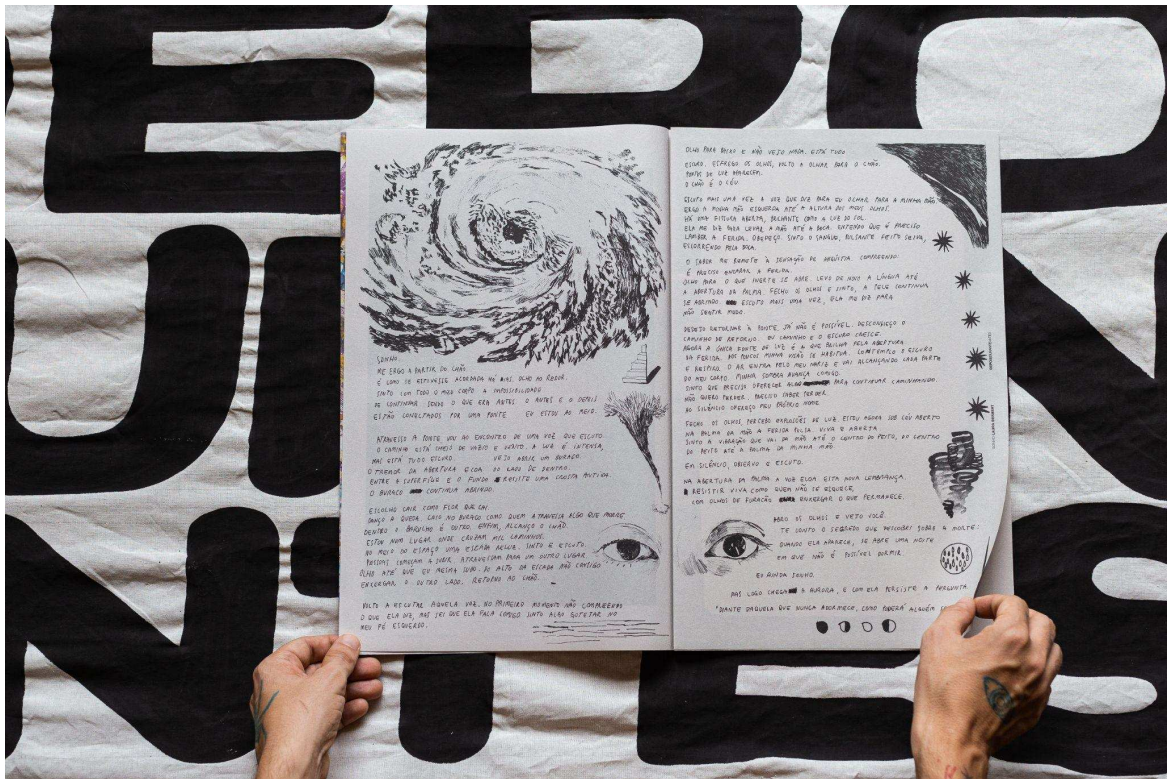 SONHO.
ME ERGO A PARTIR DO CHÃO
É COMO SE ESTIVESSE ACORDADA HÁ DIAS. OLHO AO REDOR
SINTO COM TODO O MEU CORPO A IMPOSSIBILIDADE
DE CONTINUAR SENDO O QUE ERA ANTES. O ANTES E O DEPOIS
ESTÃO CONECTADOS POR UMA PONTE EU ESTOU AO MEIO.
ATRAVESSO A PONTE VOU AO ENCONTRO DE UMA VOZ QUE ESCUTO.
O CAMINHO ESTÁ CHEIO DE VAZIO E VENTO. A LUZ É INTENSA,
MAS ESTÁ TUDO ESCURO. VEJO ABRIR UM BURACO.
O TREMOR DA ABERTURA ECOA DO LADO DE DENTRO.
ENTRE A SUPERFÍCIE E O FUNDO RESISTE UMA CROSTA ANTIGA.
O BURACO CONTINUA ABRINDO.
ESCOLHO CAIR COMO FLOR QUE CAI.
DANÇO A QUEDA. CAIO NO BURACO COMO QUEM ATRAVESSA ALGO QUE MORRE
DENTRO O BARULHO É OUTRO. ENFIM, ALCANÇO O CHÃO.
ESTOU NUM LUGAR ONDE CRUZAM MIL CAMINHOS.
NO MEIO DO ESPAÇO UMA ESCADA SINTO E ESCUTO.
PESSOAS COMEÇAM A SUBIR. ATRAVESSAM PARA UM OUTRO LUGAR.
OLHO ATÉ QUE EU MESMA SUBO. DO ALTO DA ESCADA NÃO CONSIGO
ENXERGAR O OUTRO LADO. RETORNO AO CHÃO.
VOLTO A ESCUTAR AQUELA VOZ. NO PRIMEIRO MOMENTO NÃO COMPREENDO
O QUE ELA DIZ, MAS SEI QUE ELA FALA COMIGO SINTO ALGO GOTEJAR NO
MEU PÉ ESQUERDO.
OLHO PARA BAIXO E NÃO VEJO NADA. ESTÁ TUDO
ESCURO. ESFREGO OS OLHOS, VOLTO A OLHAR PARA O CHÃO.
PONTOS DE LUZ APARECEM.
O CHÃO É O CÉU.
ESCUTO MAIS UMA VEZ A VOZ QUE DIZ PARA EU OLHAR PARA A MINHA MÃO.
ERGO A MINHA MÃO ESQUERDA ATÉ A ALTURA DOS MEUS OLHOS.
HÁ UMA FISSURA ABERTA, BRILHANTE COMO A LUZ DO SOL.
ELA ME DIZ PARA LEVAR A MÃO ATÉ A BOCA. ENTENDO QUE É PRECISO
LAMBER A FERIDA. OBEDEÇO. SINTO O SANGUE, PULSANTE FEITO SEIVA,
ESCORRENDO PELA BOCA.
O SABOR ME REMETE À SENSAÇÃO DE ANGÚSTIA. COMPREENDO.
É PRECISO ENCARAR A FERIDA.
OLHO PARA O QUE INERTE SE ABRE. LEVO DE NOVO A LÍNGUA ATÉ
A ABERTURA DA PALMA. FECHO OS OLHOS E SINTO, A PELE CONTINUA
SE ABRINDO. ESCUTO MAIS UMA VEZ, ELA ME DIZ PARA
NÃO SENTIR MEDO.
DESEJO RETORNAR À PONTE. JÁ NÃO É POSSÍVEL. DESCONHEÇO O
CAMINHO DE RETORNO. OU CAMINHO E O ESCURO CRESCE.
AGORA A ÚNICA FONTE DE LUZ É A QUE BRILHA PELA ABERTURA
DA FERIDA. AOS POUCOS MINHA VISÃO SE HABITUA. CONTEMPLO O ESCURO
E RESPIRO. O AR ENTRA PELO MEU NARIZ E VAI ALCANÇANDO CADA PARTE
DO MEU CORPO. MINHA SOMBRA AVANÇA COMIGO.
SINTO QUE PRECISO OFERECER ALGO PARA CONTINUAR CAMINHANDO.
NÃO QUERO PERDER. PRECISO SABER PERDER.
NO SILÊNCIO OFEREÇO MEU PRÓPRIO NOME.
FECHO OS OLHOS, PERCEBO EXPLOSÕES DE LUZ. ESTOU AGORA SOB CÉU ABERTO
NA PALMA DA MÃO A FERIDA PULSA. VIVA E ABERTA.
SINTO A VIBRAÇÃO QUE VAI DA MÃO ATÉ O CENTRO DO PEITO, DO CENTRO
DO PEITO ATÉ A PALMA DA MINHA MÃO.
EM SILÊNCIO, OBSERVO E ESCUTO.
NA ABERTURA DA PALMA A VOZ ECOA ESTA NOVA LEMBRANÇA.
RESISTIR VIVA COMO QUEM NÃO SE ESQUECE,
COM OLHOS DE FURACÃO ENXERGAR O QUE PERMANECE.
ABRO OS OLHOS E VEJO VOCÊ.
TE CONTO O SEGREDO QUE DESCOBRI SOBRE A MORTE:
QUANDO ELA APARECE, SE ABRE UMA NOITE
EM QUE NÃO É POSSÍVEL DORMIR.
EU AINDA SONHO.
MAS LOGO CHEGA A AURORA, E COM ELA PERSISTE A PERGUNTA:
"DIANTE DAQUELA QUE NUNCA ADORMECE, COMO PODERÁ ALGUÉM